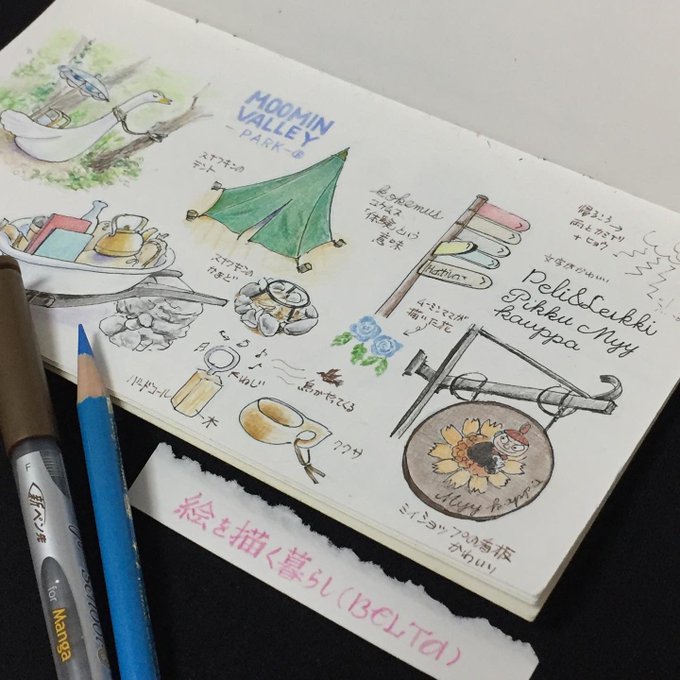 MOOMIN
VALLEY
-PARK-
スナフキンの
テント
kokemus
コケムス
体験という
意味
帰るころ→
雨とカミナリ
+ヒョウ
文字がかわいい
Peli&Leikki
Pikku Myy
kauppa
スナフキンの
かまど
ムーミンママが
描いた花
ねじ
鳥がやってくる
バードコール
木
ククサ
Myy kauppa
ミイショップの看板
かわいい
絵を描く暮らし(BELTA)
新ペン先
for Manga